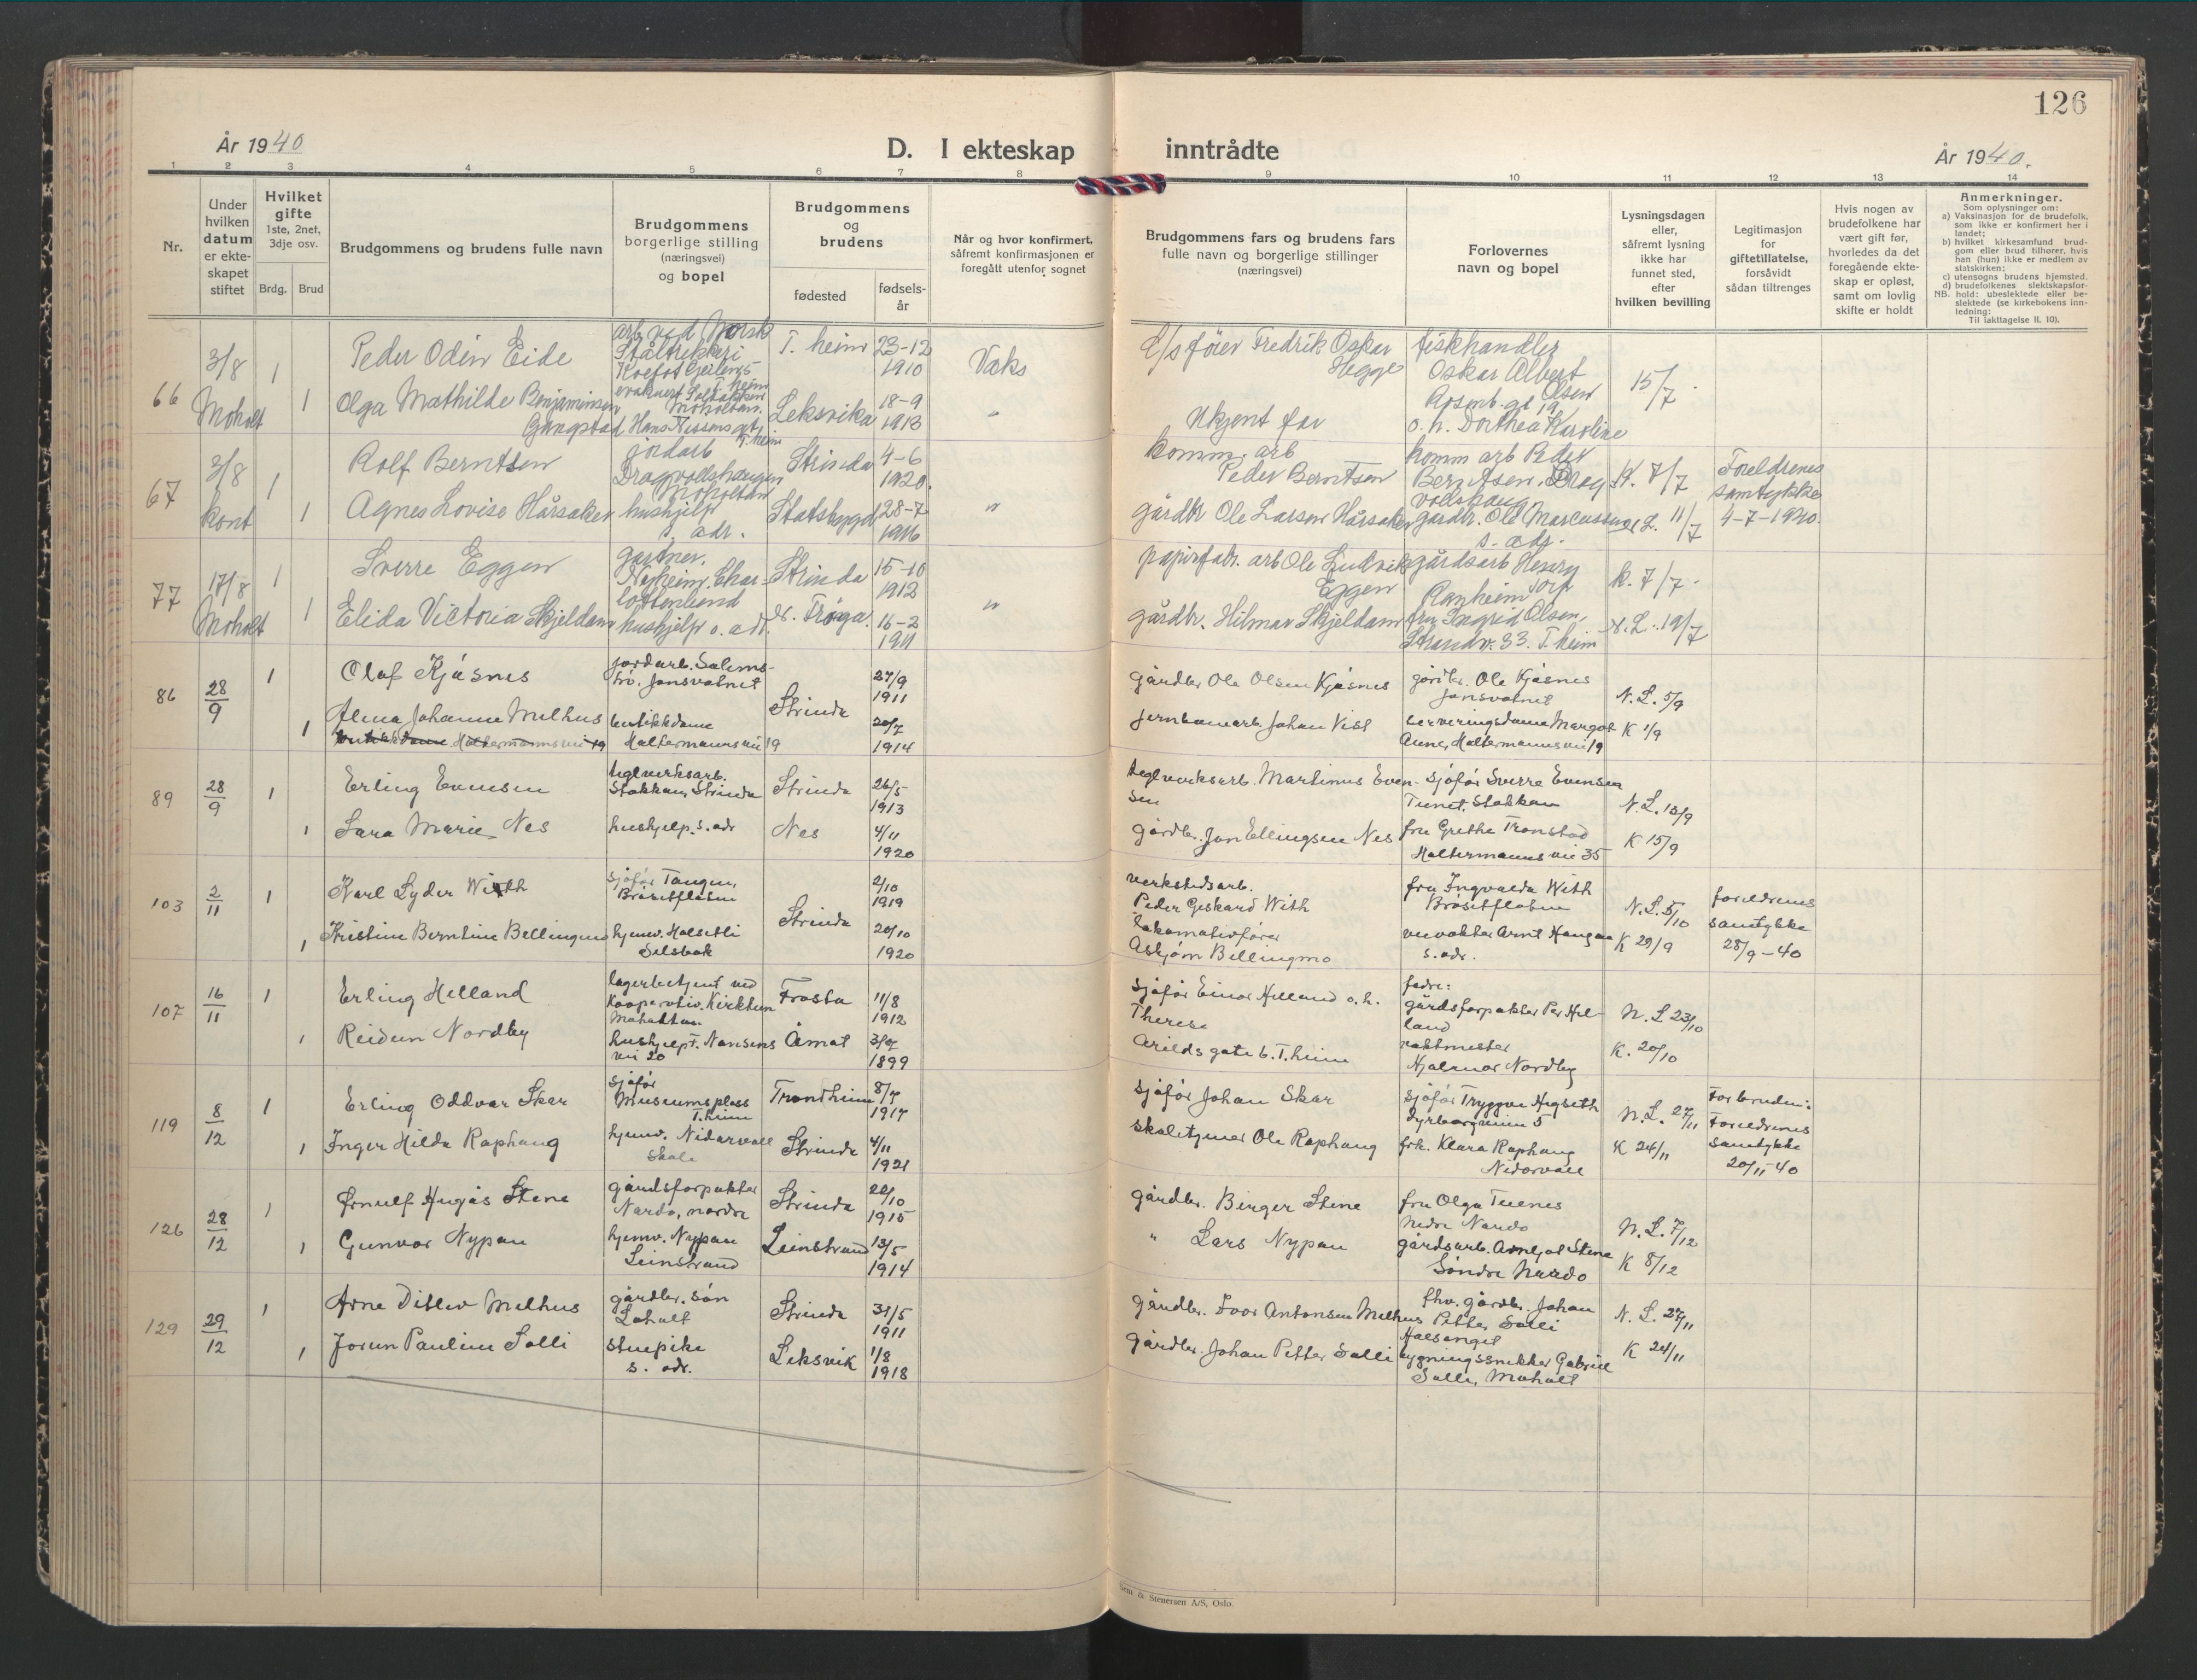 126
År 1940
D. I ekteskap inntrådte
År 1940.
1 2 3 4 5 6 7 8 9 10 11 12 13 14
Nr.
Under hvilken datum er ekte-skapet stiftet
Hvilket gifte
1ste, 2net, 3dje osv.
Brdg. Brud
Brudgommens og brudens fulle navn
Brudgommens borgerlige stilling (næringsvei) og bopel
Brudgommens og brudens
fødested
fødsels-år
Når og hvor konfirmert, såfremt konfirmasjonen er foregått utenfor sognet
Brudgommens fars og brudens fars fulle navn og borgerlige stillinger (næringsvei)
Forlovernes navn og bopel
Lysningsdagen eller, såfremt lysning ikke har funnet sted, efter hvilken bevilling
Legitimasjon for giftetillatelse, forsåvidt sådan tiltrenges
Hvis nogen av brudefolkene har vært gift før, hvorledes da det foregående ekte-skap er opløst, samt om lovlig skifte er holdt
Anmerkninger.
Som oplysninger om:
a) Vaksinasjon for de brudefolk, som ikke er konfirmert her i landet;
b) hvilket kirkesamfund brud-gom eller brud tilhører, hvis han (hun) ikke er medlem av statskirken;
c) utensogns brudens hjemsted.
d) brudefolkenes slektskapsfor-hold: ubeslektede eller be-slektede (se kirkebokens inn-ledning:
NB. Til iakttagelse II. 10).
66
3/8 Moholt
1 Peder Odin Eide
arb. ved Norsk Ståltrekkeri
T. heim 23-12 1910
Vaks
Fredrik Oskar Hegge
fiskhandler Oskar Albert Olsen
15/7
1 Olga Mathilde Benjaminsen Gangstad
Hans Nissens gt. T.heim
Leksvika 18-9 1913
"
Ukjent far
o. h. Dorthea Karoline
67
3/8 kont
1 Rolf Berntsen
jordarb Dragvollshaugen Moholtan
Strinda 4-6 1920.
komm. arb Peder Berntsen
komm arb Peder Berntsen, Dragvollshaug
K. 7/7
Foreldrenes samtykke 4-7-1940.
1 Agnes Lovise Hårsaker
hushjelp s. adr.
Stadsbygd 28-7 1916
"
gårdbr Ole Larsen Hårsaker
gårdbr. Ole Marcussen s. adr.
N. L. 11/7
77
17/8 Moholt
1 Sverre Eggen
gartner, Charlottenlund
Strinda 15-10 1912
papirfabr. arb Ole Ludvik Eggen
gårdsarb Henry Ranheim
K. 7/7.
1 Elida Victoria Skjeldam
hushjelp s. adr.
16-2 1911
"
gårdbr. Hilmar Skjeldam
fru Ingrid Olsen, Strandv. 33. T.heim
N. L. 19/7
86
28/9
1 Olaf Kjøsnes
jordarb. Jonsvatnet
Strinda 27/9 1911
gårdbr Ole Olsen Kjøsnes
gårdbr. Ole Kjøsnes Jonsvatnet
N. L. 5/9
1 Alma Johanne Melhus
butikkdame Haltermannsvei 19
butikkdame Haltermannsvei 19
20/7 1914
jernbanearb. Johan Vist
serveringsdame Margot Aune, Haltermannsvei 19
K 1/9
89
28/9
1 Erling Evensen
teglverksarb. Stokkan, Strinda
Strinda 26/5 1913
teglverksarb. Martinus Evensen
sjåfør Sverre Evensen Tunet. Stokkan
N. L. 13/9
1 Sara Marie Nes
hushjelp. s. adr
Nes 4/11 1920
gårdbr. Jon Ellingsen Nes
fru Grethe Tronstad Haltermanns vei 35
K 15/9
103
2/11
1 Karl Lyder With
sjåfør Tangen, Brøsetflaten
Strinda 2/10 1919
verkstedsarb. Peder Geskard With
fru Ingvalda With Brøsetflaten
N. L. 5/10
foreldrenes samtykke 28/9-40
1 Kristine Berntine Bellingmo
hjemv. Halsetli Selsbak
20/10 1920
lokomotivfører Asbjørn Bellingmo
veivokter Arnt Haugan s. adr.
K 29/9
107
16/11
1 Erling Helland
lagerbetjent ved Kooperativ. Moholtan
Frosta 11/8 1912
sjåfør Einar Helland o. h. Therese
fadr: gårdsforpakter Per Helland
N. L 23/10
1 Reidun Nordby
hushjelp F. Nansens vei 20
Åmot 3/7 1899
Arilds gate 6. T.heim
vaktmester Hjalmar Nordby
K. 20/10
119
8/12
1 Erling Oddvar Skar
sjåfør Museumsplass T.heim
Trondheim 8/7 1917
sjåfør Johan Skar
sjåfør Tryggve Hegseth Dyrborgveien 5
N. L. 27/11
For bruden: Foreldrenes samtykke 20/11-40
1 Inger Hilda Raphaug
hjemv. Nidarvoll skole
Strinda 4/11 1921
skoletjener Ole Raphaug
frk. Klara Raphaug Nidarvoll
K 24/11
126
28/12
1 Ørnulf Hugås Stene
gårdsforpakter Nardo, nordre
Strinda 22/10 1915
gårdbr. Birger Stene
fru Olga Tuenes Nedre Nardo
N. L. 7/12
1 Gunvor Nypan
hjemv. Nypan Leinstrand
Leinstrand 13/5 1914
" Lars Nypan
gårdsarb. Arnljot Stene Søndre Nardo
K 8/12
129
29/12
1 Arne Ditlev Melhus
gårdbr. søn Loholt
Strinda 31/5 1911
gårdbr. Ivar Antonsen Melhus
fhv. gårdbr. Johan Petter Solli
N. L. 27/11
1 Jorun Pauline Solli
stuepike s. adr.
Leksvik 1/8 1918
gårdbr. Johan Petter Solli
bygningssnekker Gabriel Solli, Moholt
K 24/11
Sem & Stenersen A/S, Oslo.